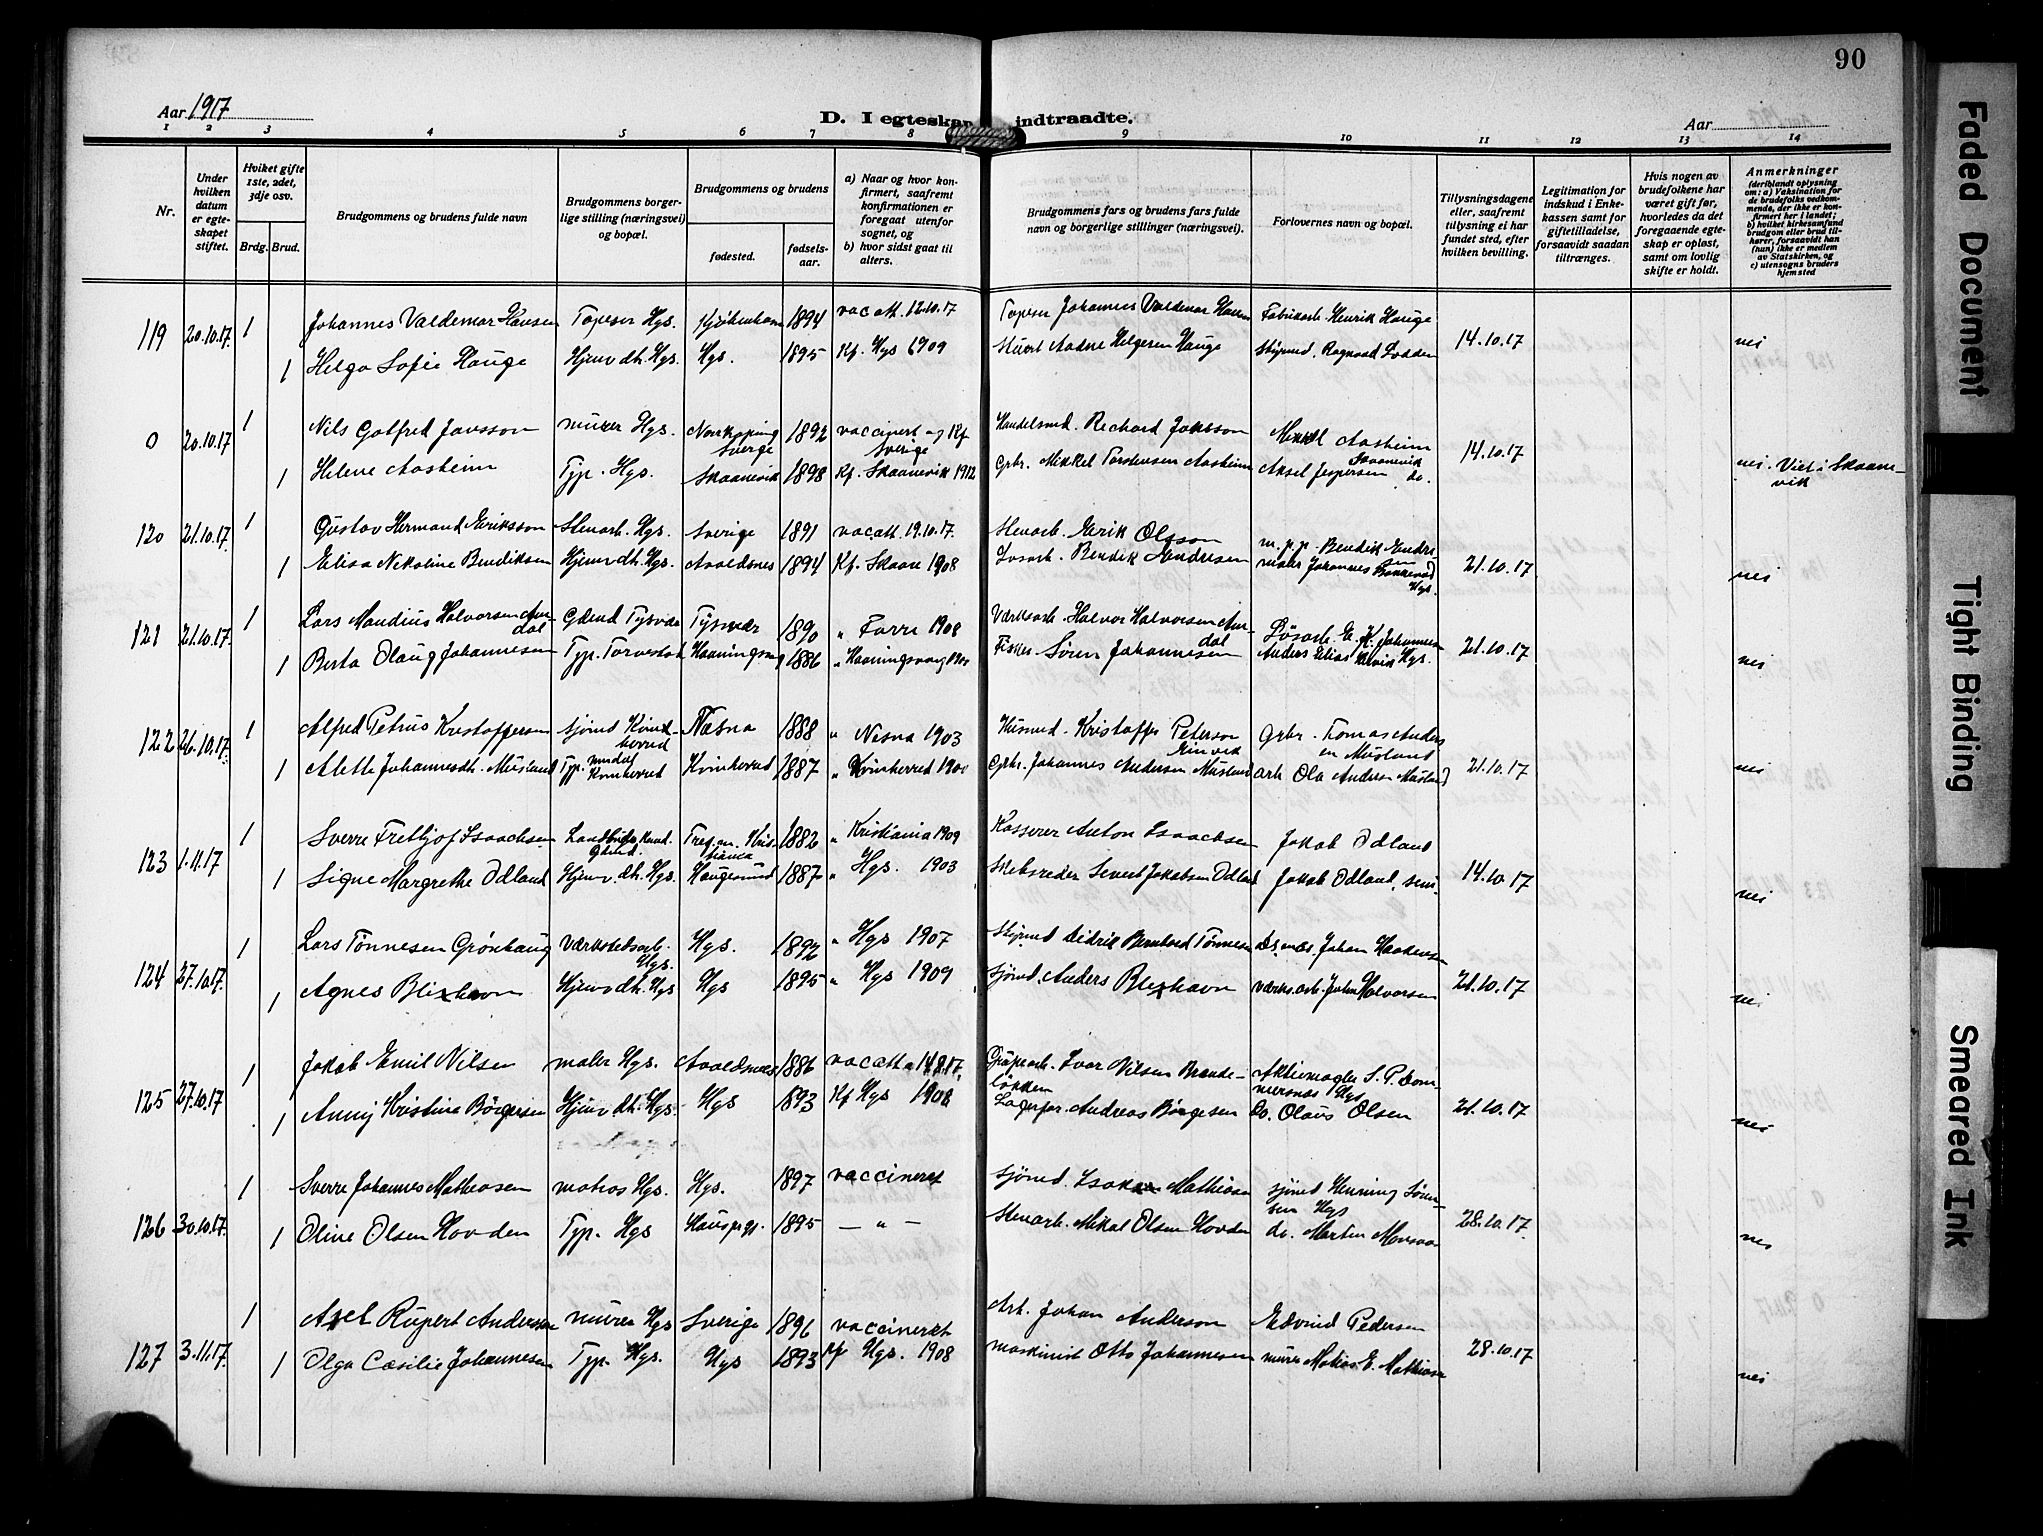 90
Aar 1917
D. I egteskap indtraadte.
Aar
1 2 3 4 5 6 7 8 9 10 11 12 13 14
Nr.
Under hvilken datum er egteskapet stiftet.
Hviket gifte 1ste, 2det, 3dje osv.
Brdg. Brud.
Brudgommens og brudens fulde navn
Brudgommens borgerlige stilling (næringsvei) og bopæl.
Brudgommens og brudens
fødested.
fødselsaar.
a) Naar og hvor konfirmert, saafremt konfirmationen er foregaat utenfor sognet, og
b) hvor sidst gaat til alters.
Brudgommens fars og brudens fars fulde navn og borgerlige stillinger (næringsvei).
Forlovernes navn og bopæl.
Tillysningsdagene eller, saafremt tillysning ei har fundet sted, efter hvilken bevilling.
Legitimation for indskud i Enkekassen samt for giftetilladelse, forsaavidt saadan tiltrænges.
Hvis nogen av brudefolkene har været gift før, hvorledes da det foregaaende egteskap er opløst, samt om lovlig skifte er holdt.
Anmerkninger
(deriblandt oplysning om: a) Vaksination for de brudefolks vedkommende, der ikke er konfirmert her i landet; b) hvilket kirkesamfund brudgom eller brud tilhører, forsaavidt han (hun) ikke er medlem av Statskirken, og c) utensogns bruders hjemsted
119 20.10.17. 1 Johannes Valdemar Hansen Tapeser Hgs. Kjøbenhavn 1894 vac att. 12.10.17 Tapeser Johannes Valdemar Hansen Fabrikarb. Henrik Hauge
1 Helga Sofie Hauge Hjemv. dh. Hgs. Hgs. 1895 Kf. Hgs 1909 Aadne Helgesen Hauge Ragnvald Lodden 14.10.17 nei
0 20.10.17 1 Nils Gotfred Jansson murer Hgs. Norrkøping Sverge 1892 vaccinert og Kf Sverige Handelsmd. Richard Jakobsson Mikkel Aasheim Skaanevik
1 Helene Aasheim Typ. Hgs. Skaanevik 1898 Kf. Skaanevik 1912 Grbr. Mikkel Torstensen Aasheim Aksel Jespersen do. 14.10.17 nei. Viet i Skaanevik
120 21.10.17. 1 Gustav Hermand Eriksson Stenarb. Hgs. Sverige 1891 vac att. 19.10.17. Stenarb. Erik Olsson m.p.p. Bendik Endresen
1 Elisa Nikoline Bendiksen Hjemv dh. Hgs. Avaldsnes 1894 Kf. Skaare 1908 Løsarb. Bendik Endresen maler Johannes Hgs. 21.10.17 nei
121 21.10.17. 1 Lars Mandius Halvorsen Aurdal Gdmd Tysvær Tysvær 1890 " Førre 1908 Værkstarb. Halvor Halvorsen Aurdal Løsarb. E. K. Johannesen
1 Berta Olaug Johannesen Typ. Torvestad Honningsvåg 1886 " Honningsvaag Fisker. Søren Johannesen Anders Elias Hgs. 21.10.17 nei
122 26.10.17. 1 Alfred Petrus Kristoffersen sjømd Kvindherred Næsna 1888 " Nesna 1903 Husmd. Kristoffer Peterson Grbr. Tomas Andersen Musland
1 Alette Johannesdt. Musland Typ. Kvinherred Kvinherred 1887 " Kvinherred Grbr. Johannes Andersen Musland arb Ola Andersen Musland 21.10.17 nei
123 1.11.17 1 Sverre Fretthjof Isaachsen Landbrugskand. Gdmd. Kristiania 1882 " Kristiania 1909 Kasserer Anton Isaachsen Jakob Odland
1 Signe Margrethe Odland Hjemv. dh. Hgs. Haugesund 1887 " Hgs. 1903 Skibsreder Sivert Jakobsen Odland Jakob Odland, sen. 14.10.17 nei
124 27.10.17. 1 Lars Tønnesen Grønhaug Værkstedsarb. Hgs. Hgs. 1892 " Hgs 1907 Didrik Bernhard Tønnesen Johan
1 Agnes Blixhavn Hjemv dh. Hgs Hgs 1895 " Hgs 1909 sjømd. Anders Blixhavn værks. arb. John Halvorsen 21.10.17 nei
125 27.10.17 1 Jakob Emil Nilsen maler Hgs. Avaldsnes 1886 vac att Ivar Nilsen Brandeløkken Aktiemægler S. P. Dommersnes Hgs
1 Anny Kristine Børgesen Hjemv dh. Hgs. Hgs 1893 Kf Hgs 1908 Lagerfor. Andreas Børgesen Do. Olaus Olsen 21.10.17 nei
126 30.10.17. 1 Sverre Johannes Mathiasen matros Hgs. Hgs. 1897 vaccineret sjømd. Isak Mathiasen sjømd Henning Sørensen Hgs
1 Oline Olsen Hovden Typ. Hgs 1895 — " — Stenarb. Mikal Olsen Hovden do. Morten 28.10.17. nei
127 3.11.17. 1 Axel Rupert Anderson murer Hgs Sverige 1896 vaccineret Arb. Johan Anderson Edvind Pedersen
1 Olga Cæsilie Johannesen Typ. Hgs. Hgs 1893 Kf Hgs. 1908 maskinist Otto Johannesen murer Matias E. Mathiasen 28.10.17 nei
Faded Document
Tight Binding
Smeared Ink